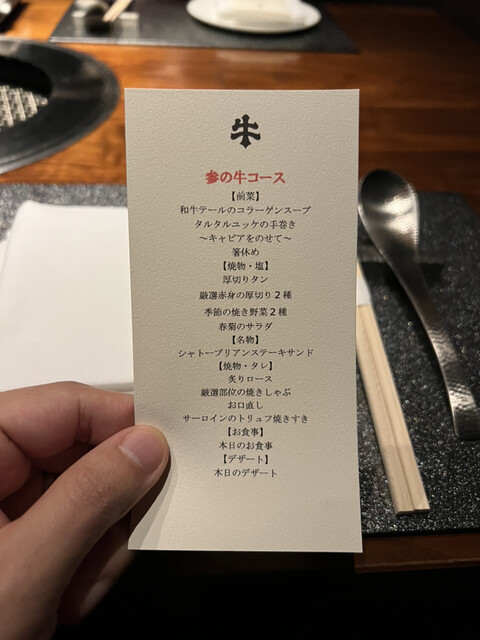 牛
参の牛コース
【前菜】
和牛テールのコラーゲンスープ
タルタルユッケの手巻き
～キャビアをのせて～
箸休め
【焼物・塩】
厚切りタン
厳選赤身の厚切り２種
季節の焼き野菜２種
春菊のサラダ
【名物】
シャトーブリアンステーキサンド
【焼物・タレ】
炙りロース
厳選部位の焼きしゃぶ
お口直し
サーロインのトリュフ焼きすき
【お食事】
本日のお食事
【デザート】
本日のデザート